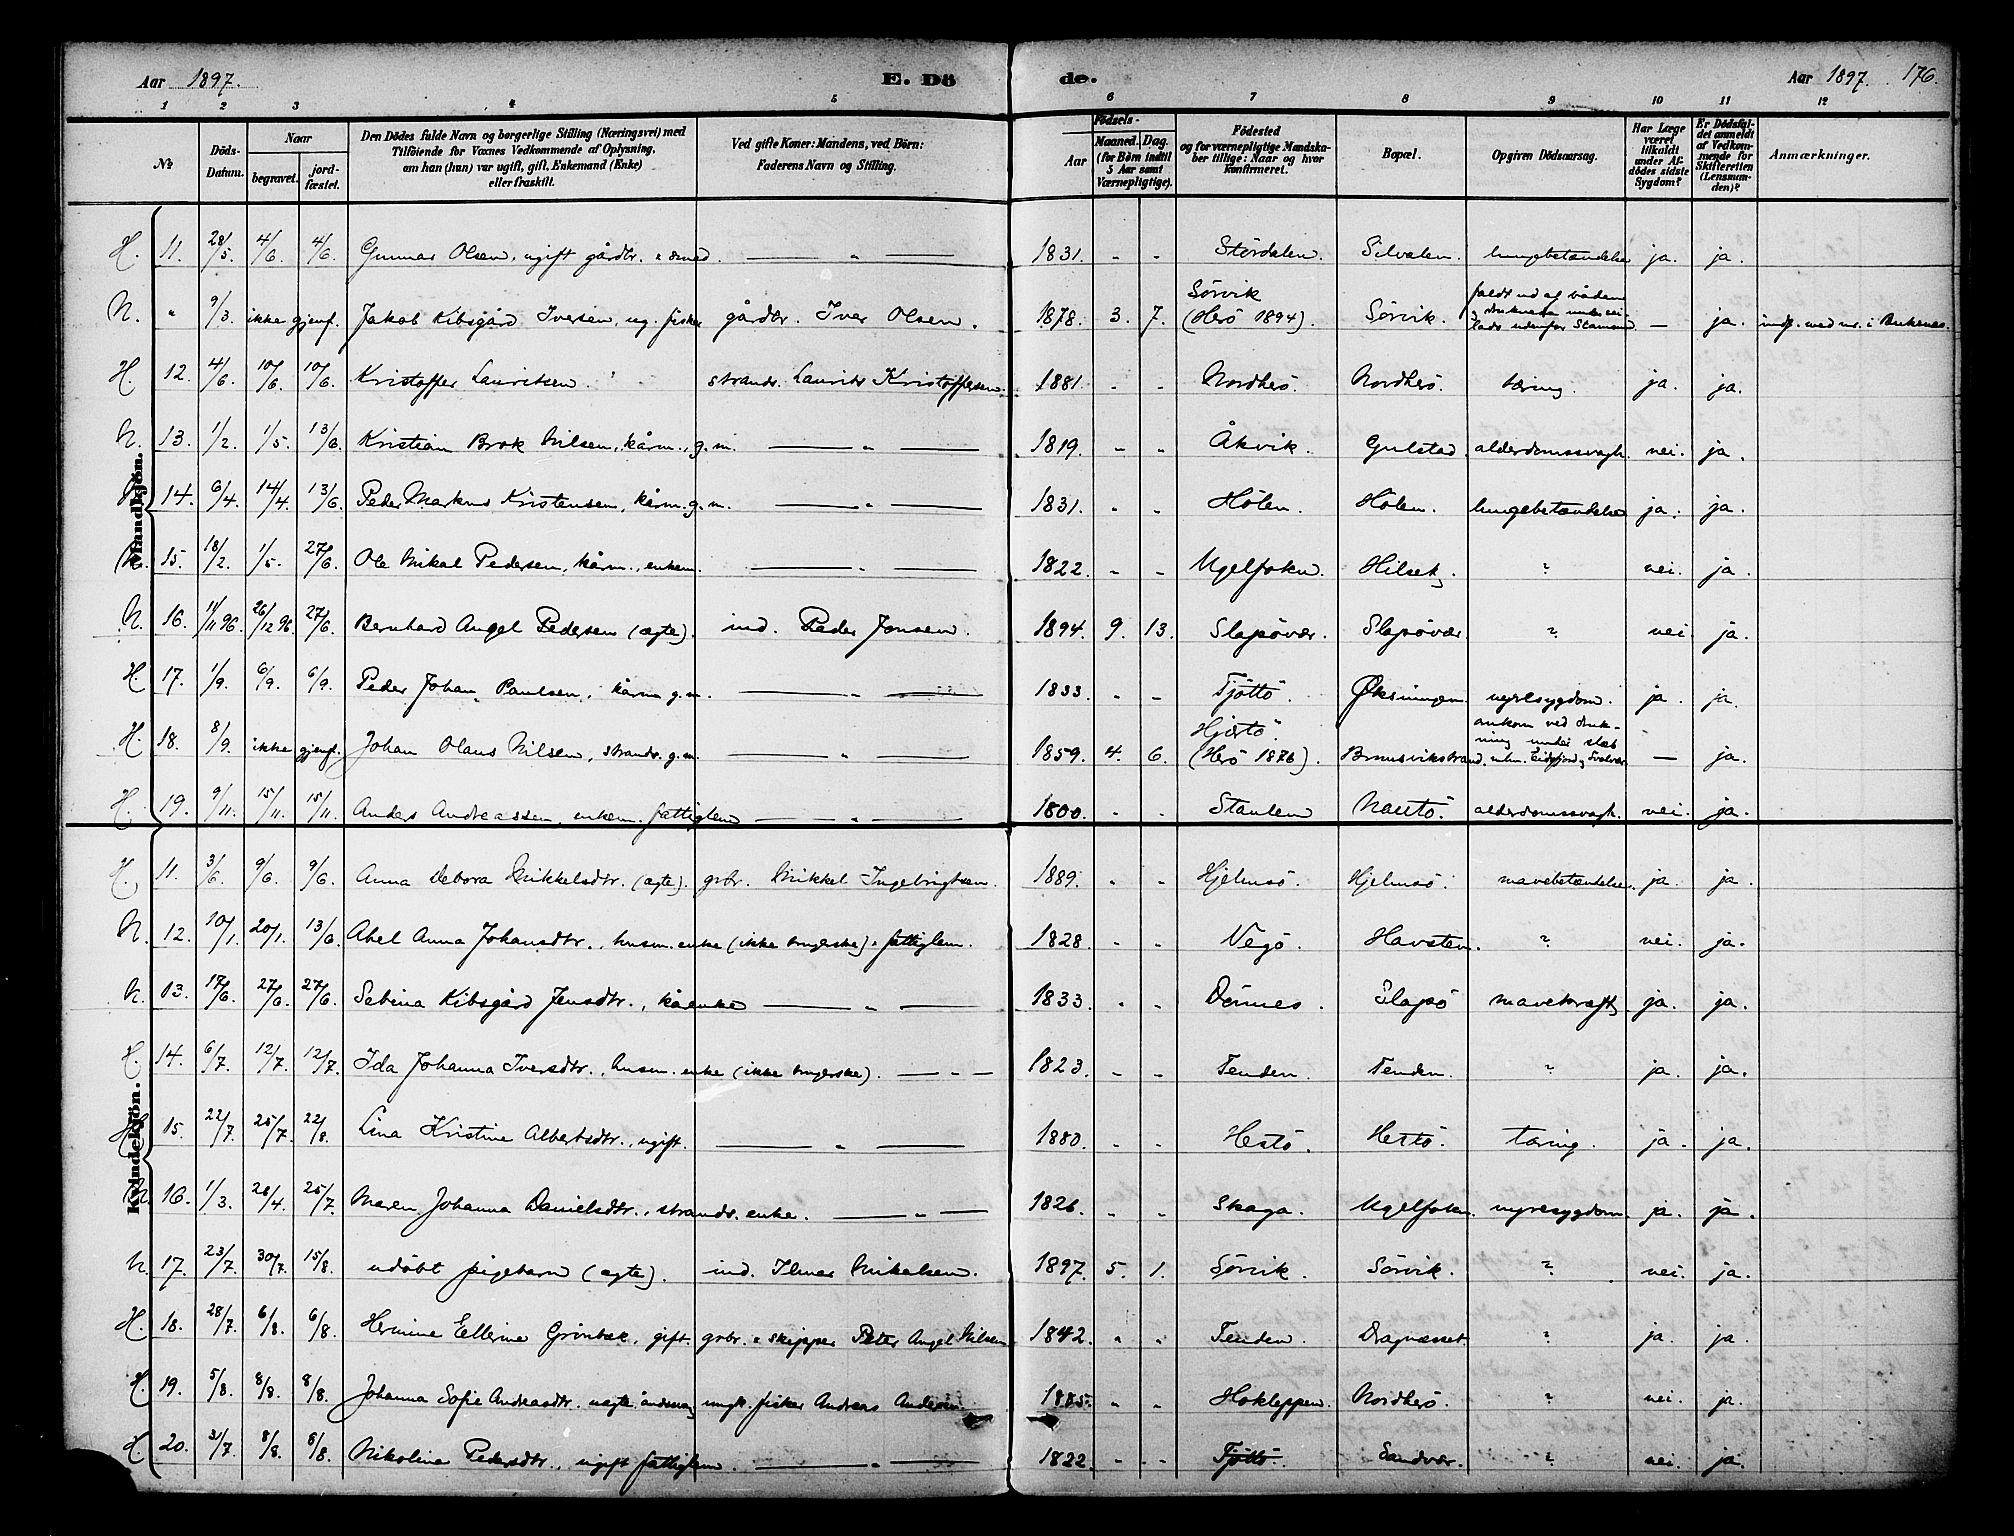 Aar 1897. E. Dö de. Aar 1897. 176.
1 2 3 4 5 6 7 8 9 10 11 12
No
Döds-Datum.
Naar
begravet. jordfæstet.
Den Dödes fulde Navn og borgerlige Stilling (Næringsvei) med
Tilföiende for Voxnes Vedkommende af Oplysning,
om han (hun) var ugift, gift, Enkemand (Enke)
eller fraskilt.
Ved gifte Koner: Mandens, ved Börn:
Faderens Navn og Stilling.
Födsels-
Aar
Maaned. Dag.
(for Börn indtil
5 Aar samt
Værnepligtige).
Födested
og for værnepligtige Mandska-
ber tillige: Naar og hvor
konfirmeret.
Bopæl.
Opgiven Dödsaarsag.
Har Læge
været
tilkaldt
under Af-
dödes sidste
Sygdom?
Er Dödsfal-
det anmeldt
af Vedkom-
mende for
Skifteretten
(Lensman-
den)?
Anmærkninger.
Mandkjön.
H. 11. 28/5. 4/6. 4/6. Gunnar Olsen, ugift gårdbr. & smed. — " — 1831. " " Stördalen. Silvalen. lungebetændelse ja. ja.
N. " 9/3. ikke gjenf. Jakob Kibsgård Iversen, ug. fisker gårdbr. Iver Olsen. 1878. 3. 7. Sörvik (Herö 1894). Sörvik. faldt ud af båden — ja. indf. med nr. i
H. 12. 4/6. 10/6. 10/6. Kristoffer Lauritsen. strands. Laurits Kristoffersen. 1881. " " Nordherö. Nordherö. tæring. ja. ja.
N. 13. 1/2. 1/5. 13/6. Kristian Brok Nilsen, kårm., g.m. — " — 1819. " " Åkvik. Gulstad. alderdomssvagh. nei. ja.
N. 14. 6/4. 14/4. 13/6. Peder Markus Kristensen, kårm. g.m. — " — 1831. " " Hölen. Hölen. lungebetændelse ja. ja.
N. 15. 18/2. 1/5. 27/6. Ole Mikal Pedersen, kårm., enkem. — " — 1822. " " Ugelfoten. Hilset. ? nei. ja.
N. 16. 11/11 96. 26/12 96. 27/6. Bernhard Angel Pedersen (ægte). ind. Peder Jonsen. 1894. 9. 13. Slapövær. Slapövær ? nei ja.
H. 17. 1/9. 6/9. 6/9. Peder Johan Paulsen, kårm g.m. — " — 1833 " " Tjöttö. Öksningen nyresygdom. ja ja.
H. 18. 8/9. ikke gjenf. Johan Olaus Nilsen, strands. g.m. — " — 1859. 4. 6. Hjartö. (Herö 1876). Brunsvikstrand. omkom ved drukning under — ja.
H. 19. 9/11. 15/11. 15/11. Anders Andreassen, enkem. fattiglem — " — 1800. " " Staulen Nautö. alderdomssvagh. nei. ja.
Kvindekjön.
H. 11. 3/6. 9/6. 9/6. Anna Debora Mikkelsdtr. (ægte). grbr. Mikkel Ingebrigtsen. 1889. " " Hjelmsö. Hjelmsö. mavebetændelse. ja. ja.
N. 12. 10/1. 20/1. 13/6. Abel Anna Johansdtr., husm. enke (ikke brugerske) & fattiglem. 1828. " " Vegö. Havsten. ? nei. ja.
N. 13. 17/6. 27/6. 27/6. Sebina Kibsgård Jensdtr., kårenke — " — 1833. " " Dönnes. Slapsö mavekræft. ja. ja.
H. 14. 6/7. 12/7. 12/7. Ida Johanna Iversdtr., husm. enke (ikke brugerske). — " — 1823. " " Tenden. Tenden. ? ja. ja.
H. 15. 22/7. 25/7. 22/8. Lina Kristine Albertsdtr., ugift. — " — 1880. " " Hestö. Hestö. tæring. ja. ja.
N. 16. 1/3. 28/4. 25/7. Maren Johanna Danielsdtr., strands. enke. — " — 1826. " " Skaga. Ugelfoten. nyresygdom. ja. ja.
N. 17. 23/7. 30/7. 15/8. udöbt pigebarn (ægte). ind. Ilmer Mikalsen. 1897. 5. 1. Sörvik. Sörvik. ? nei. ja.
H. 18. 28/7. 6/8. 6/8. Hermine Ellerine Grönbæk, gift. grbr. & skipper Peter Angel Nilsen 1842. " " Tenden. Dragnæsset ? ja. ja.
H. 19. 5/8. 8/8. 8/8. Johanna Sofie Andreasdtr. uægte, ungk. fisker Andreas Andersen 1885. " " Hokleppen. Nordherö. ? nei. ja.
H. 20. 31/7. 8/8. 8/8. Nikoline Pedersdtr., ugift fattiglem. — " — 1822. " " Tjöttö. Sandvær. ? nei. ja.